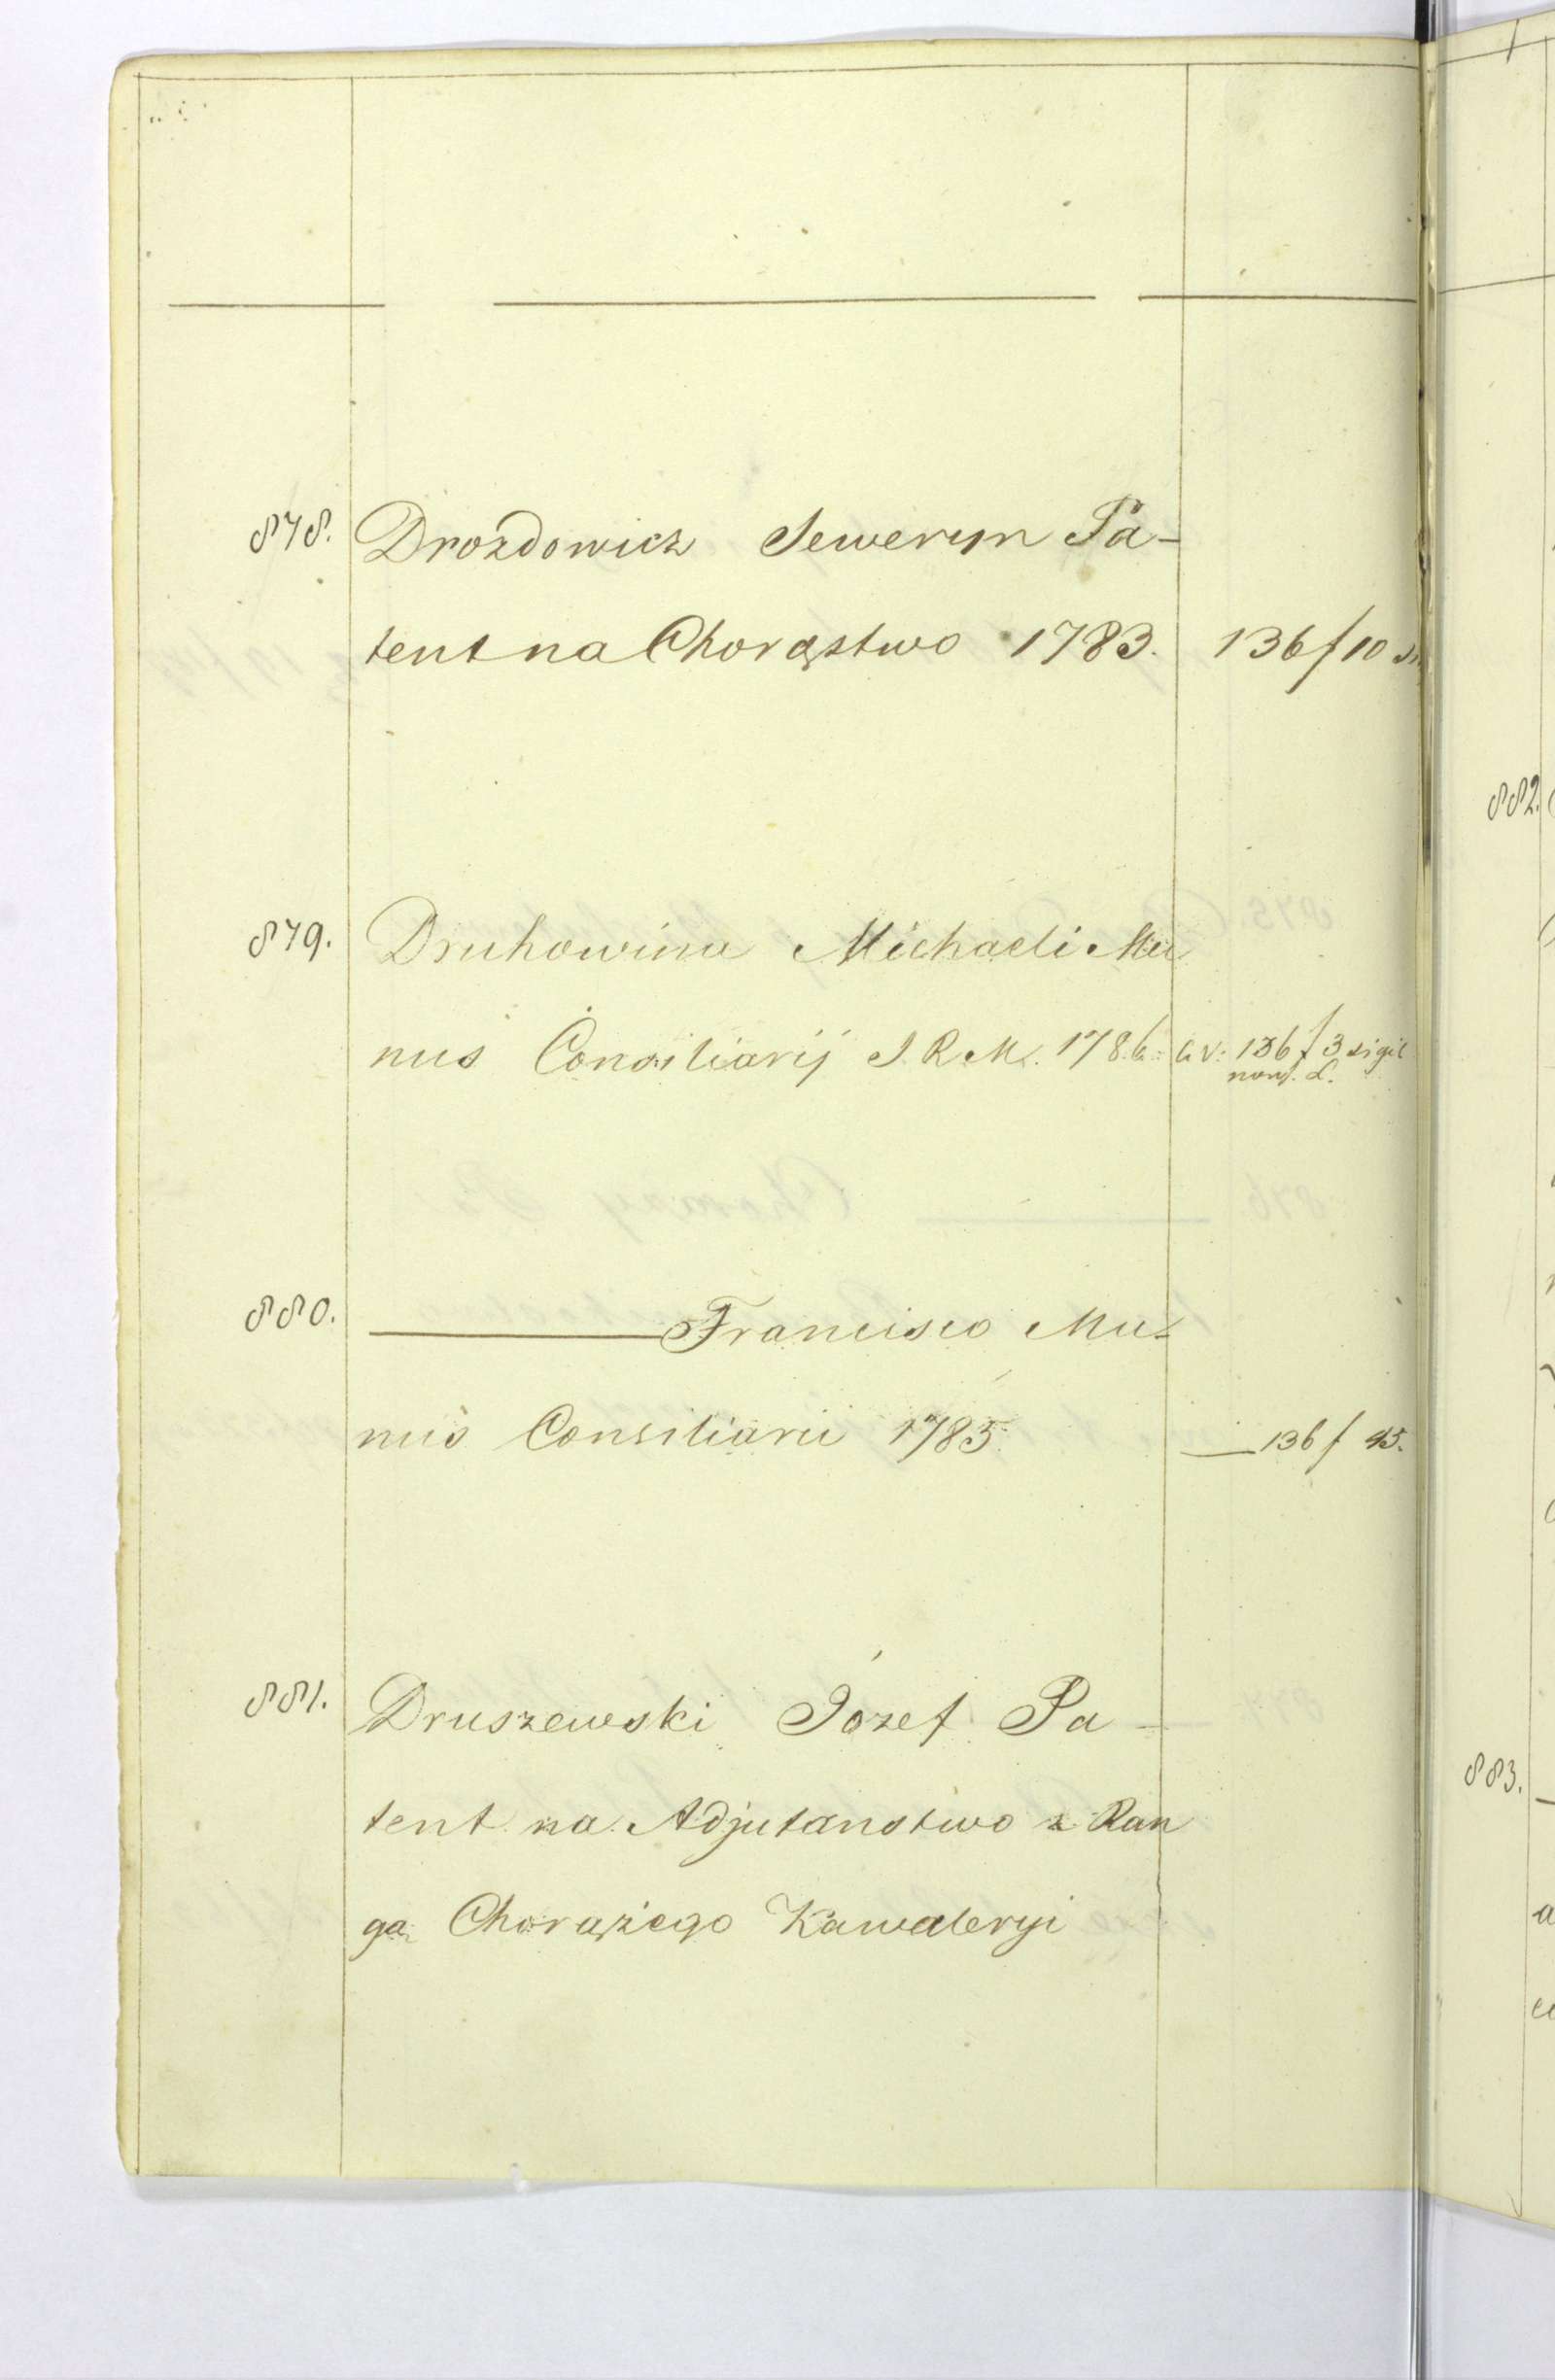 878. Drozdowicz Seweryn Pa-
tent na Chorąstwo 1783. 136 f 10
879. Druhowina Michaeli Mu
nus Consiliarij S. R. M. 1786. 136 f 3 sigil
880. ——— Francisco Mu-
nus Consiliarii 1785 — 136 f 45.
881. Druszewski Józef Pa-
tent na Adjutanstwo z Ran
gą Chorążego Kawaleryi
882.
883.